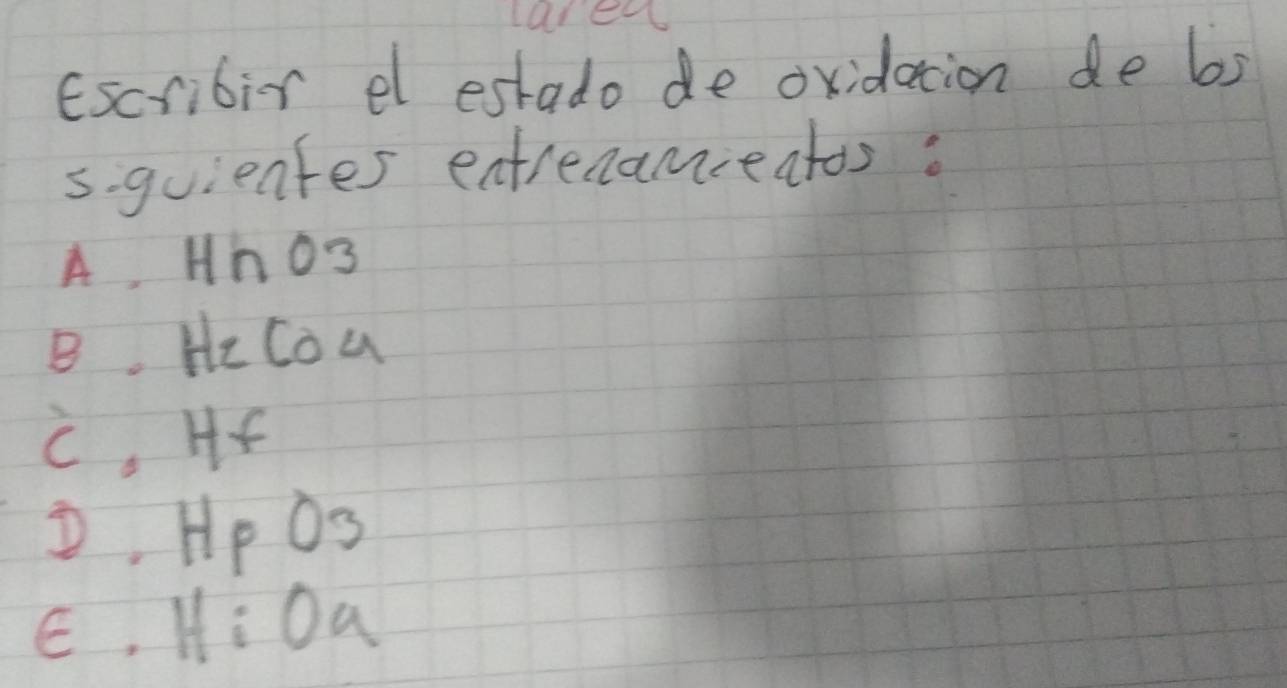 Tarea
Escribir el estado de oxidacion de los
siguientes entrenamientos :
A. Hn O3
B. H2 CO4
C. Hf
D. Hp O3
E. Hi O4